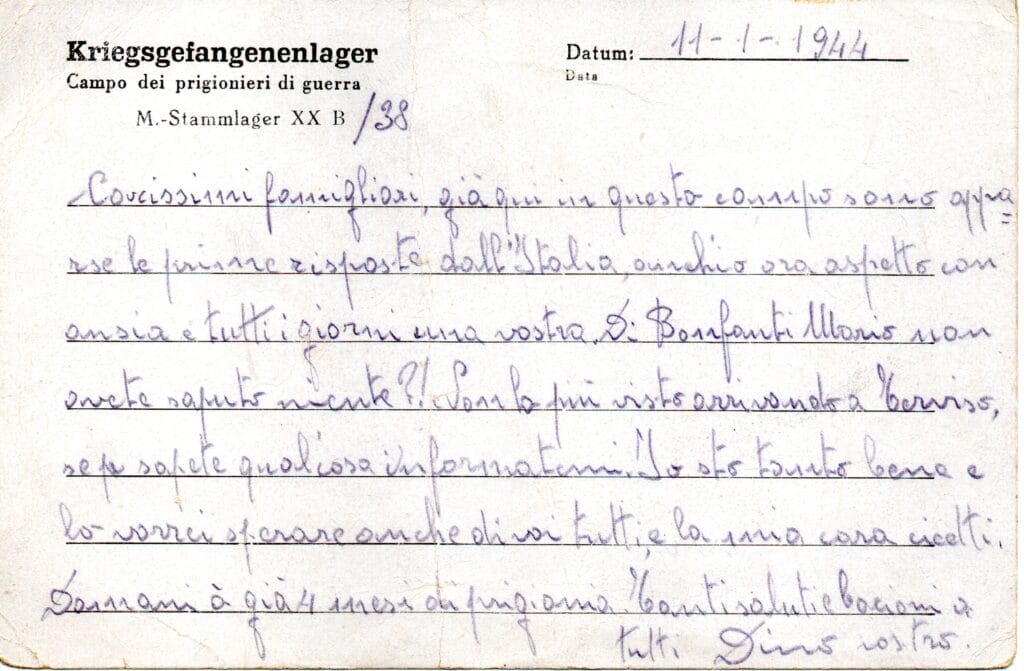 Kriegsgefangenenlager
Campo dei prigionieri di guerra
M.-Stammlager XX B /38
Datum: 11-1-1944
Data
Carissimi famigliari, già qui in questo campo sono appa=
rse le prime risposte dall'Italia, anchio ora aspetto con
ansia e tutti i giorni una vostra. Di Bonfanti Mario non
avete saputo niente?! Non lo più visto arrivando a Terviso,
se sapete qualcosa informatemi. Io sto tanto bene e
lo vorrei sperare anche di voi tutti, e la mia cara
Domani à già 4 mesi di prigionia. Tanti saluti e bacioni a
tutti Dino vostro.